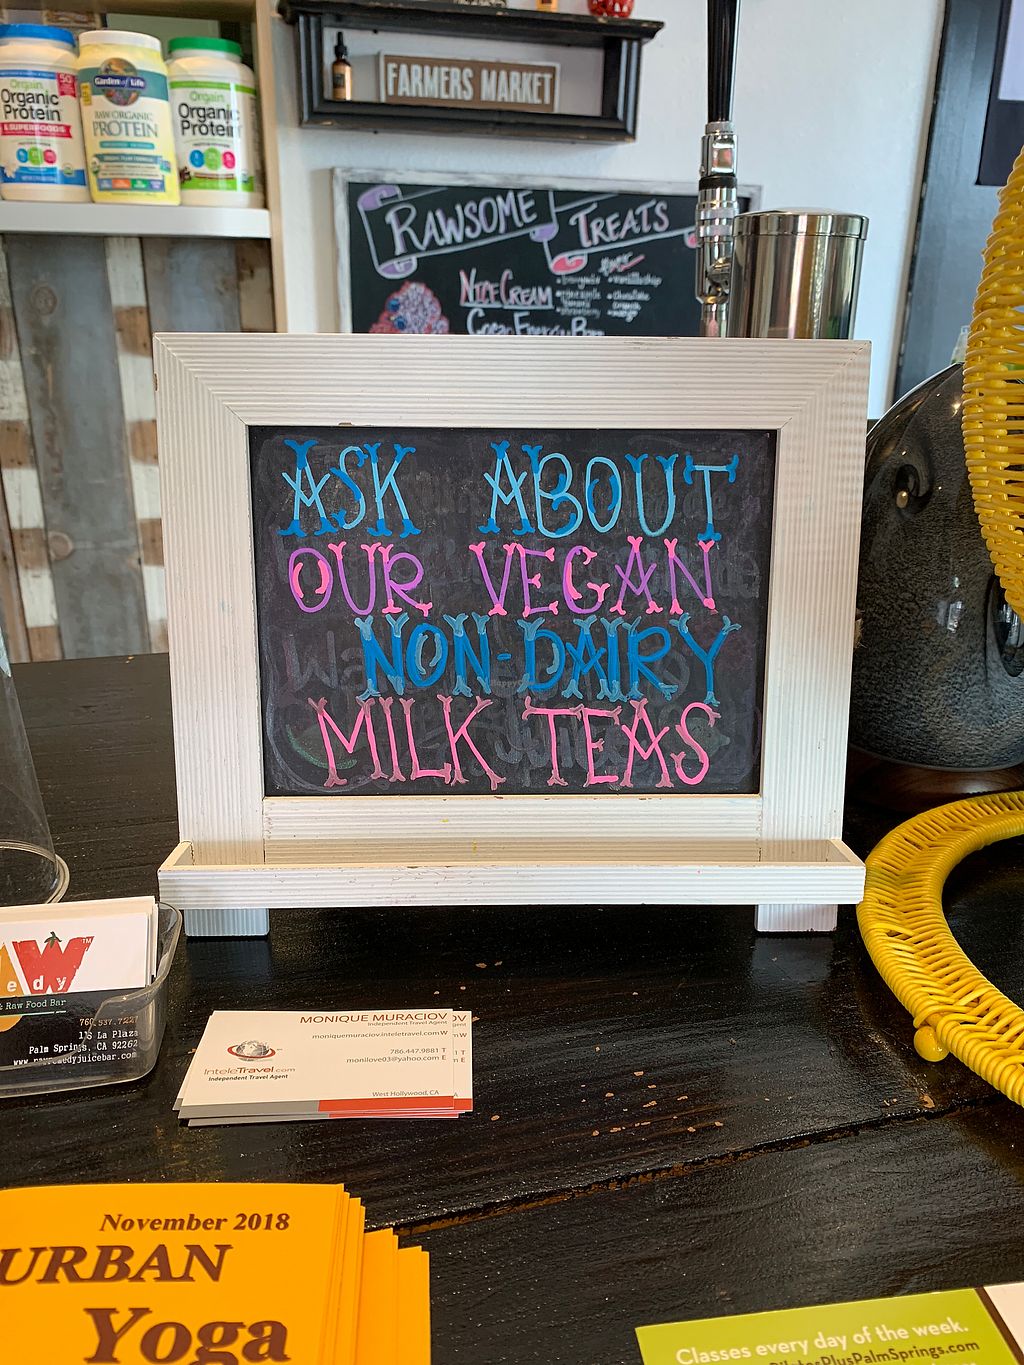 50
Orgain
Organic
Protein
& SUPERFOODS
Garden of Life
RAW ORGANIC
PROTEIN
Orgain
Organic
Protein
FARMERS MARKET
RAWSOME TREATS
NICECREAM
ASK ABOUT
OUR VEGAN
NON-DAIRY
MILK TEAS
& Raw Food Bar
La Plaza
Palm Springs, CA 92262
MONIQUE MURACIOV
Independent Travel Agent
moniquemuraciov.inteletravel.com W
786.447.9881 T
monilove03@yahoo.com E
InteleTravel.com
Independent Travel Agent
West Hollywood, CA
November 2018
URBAN
Yoga
Classes every day of the week.
PilatesPlusPalmSprings.com